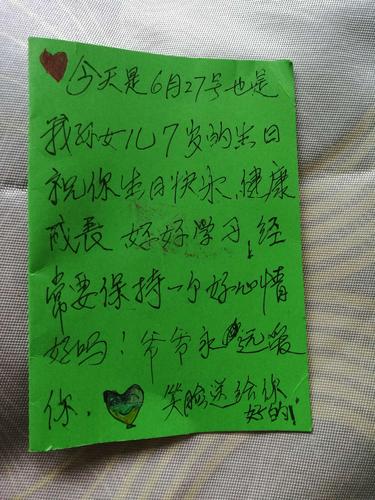 今天是6月27号也是
我孙女儿7岁的生日
祝你生日快乐、健康
成长 好好学习,经
常要保持一个好心情
好吗!爷爷永远爱
你.
笑脸送给你
好的!